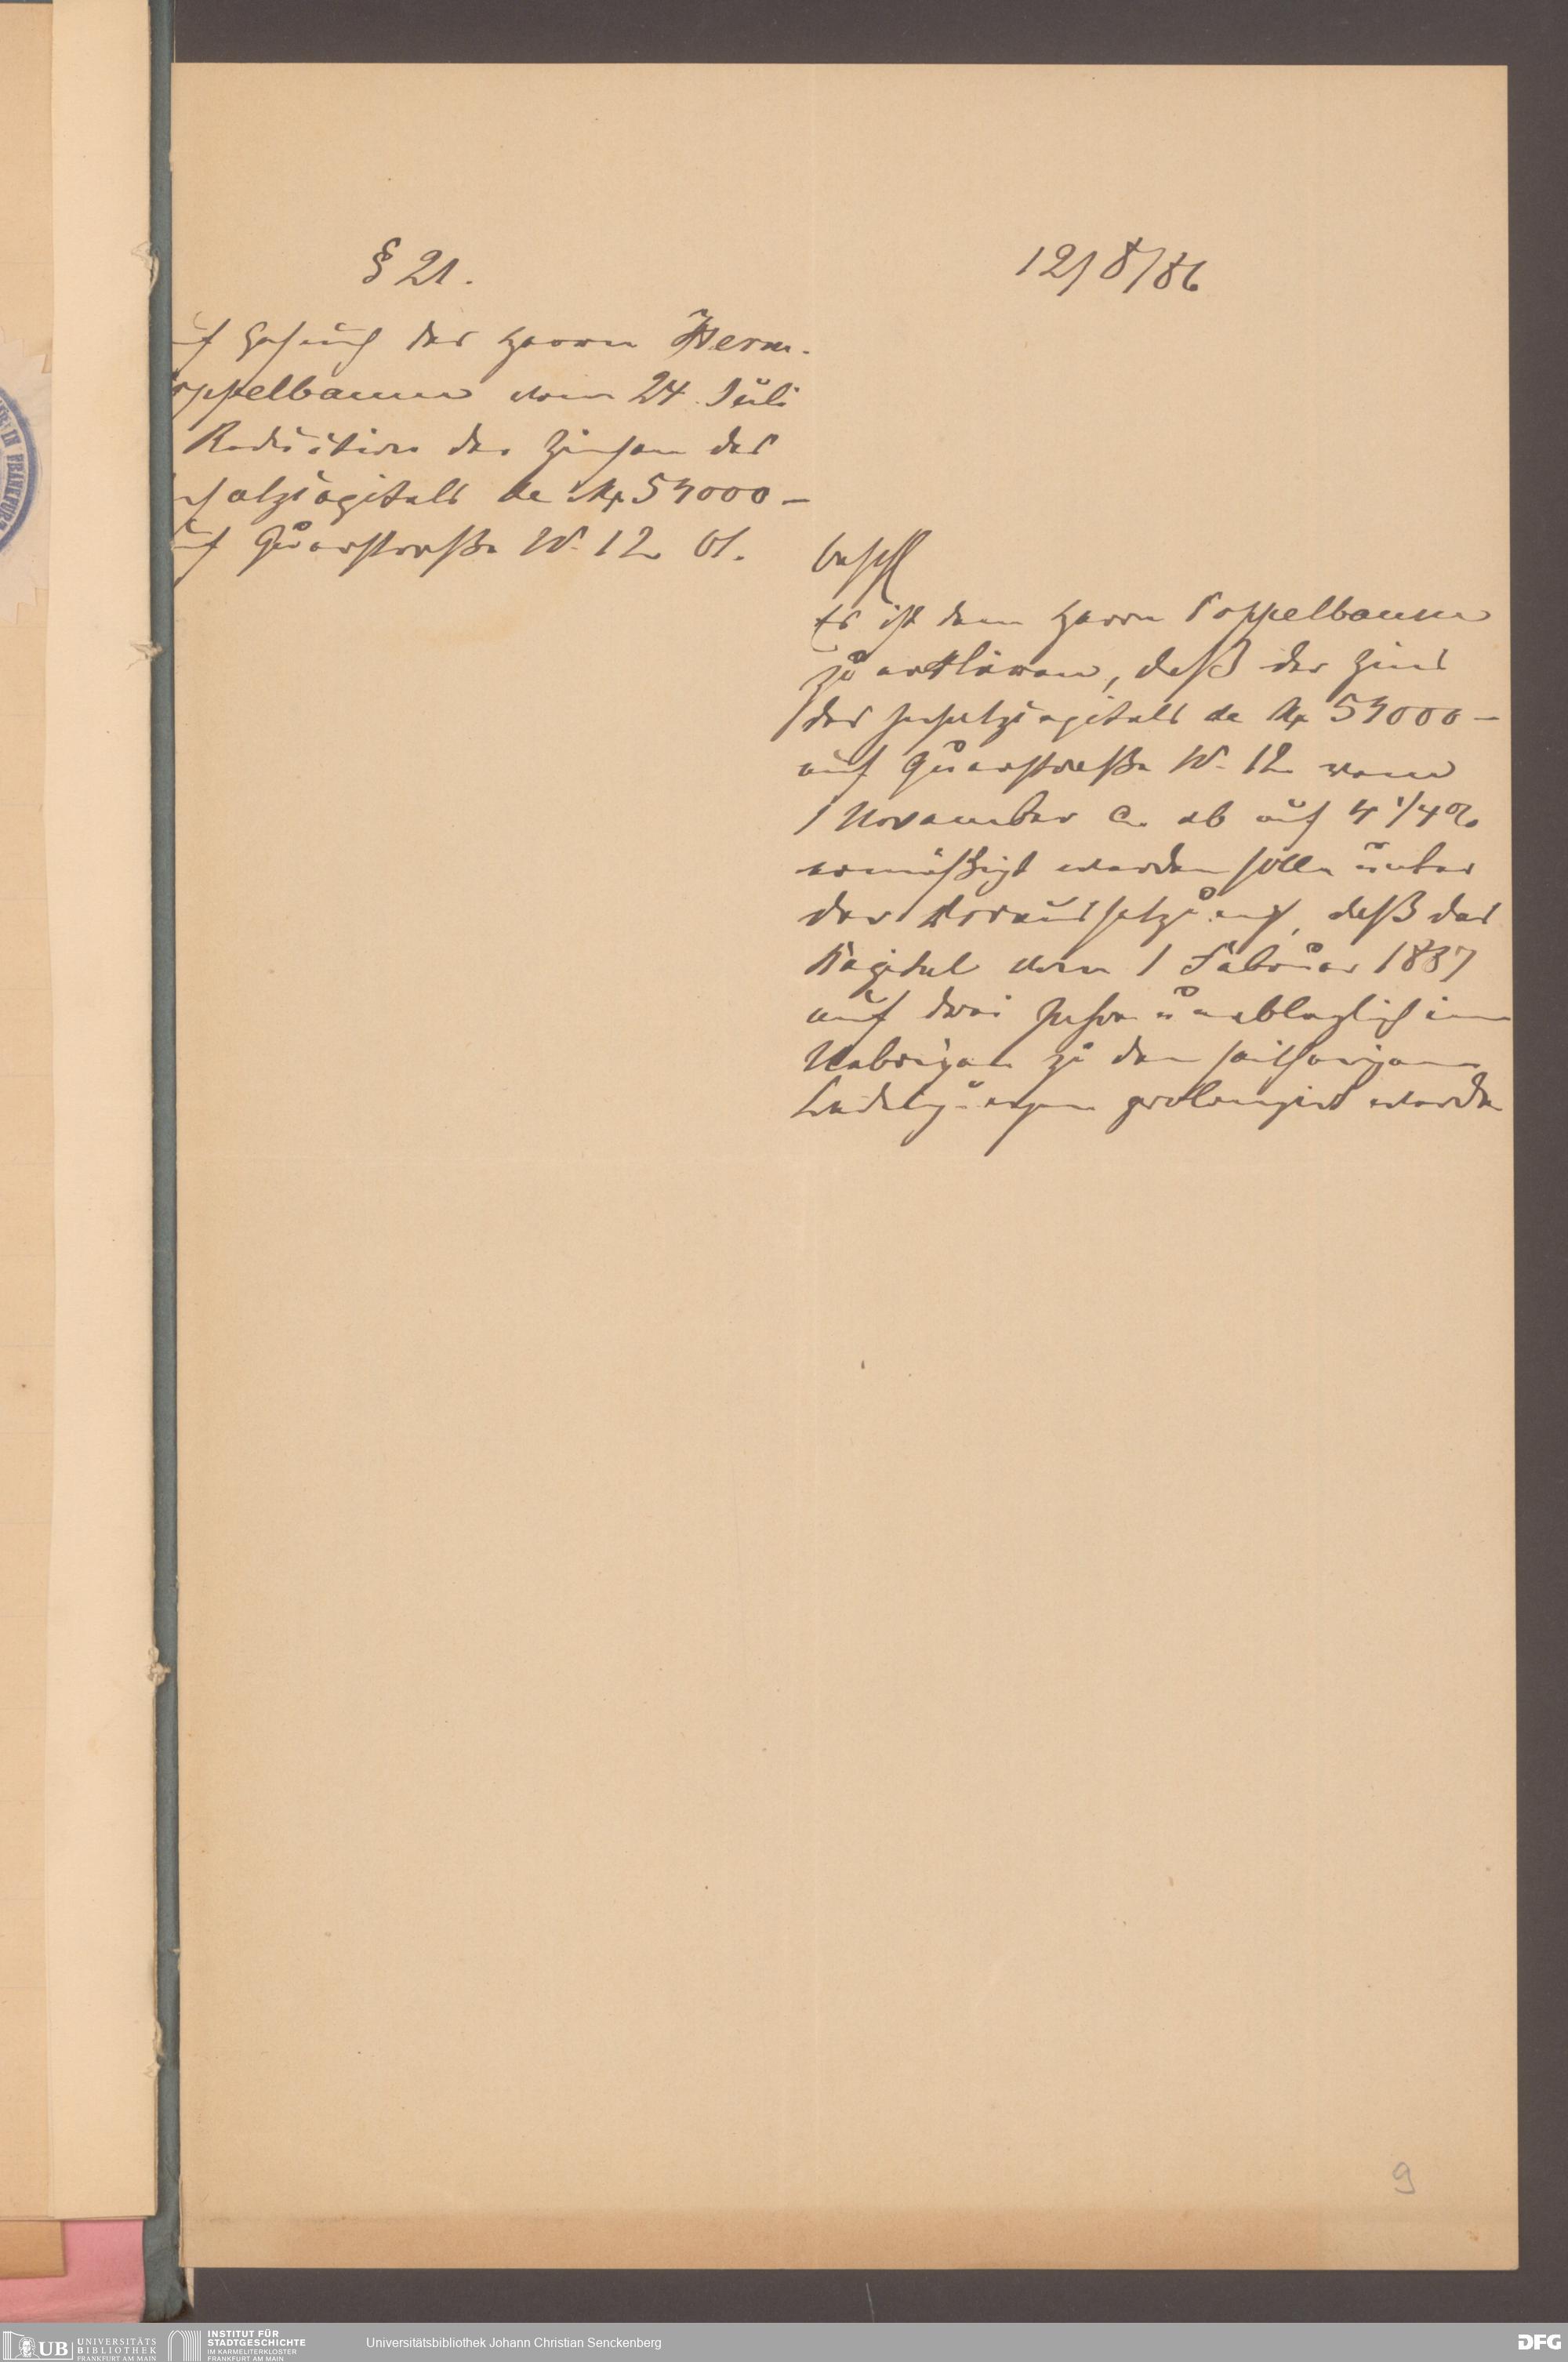 § 21.
12/8/86
uf Gesuch des Herrn Herm.
oppelbaum vom 24. Juli
Reduction der Zinsen des
satzcapitals de Mk 54000 –
uf Querstraße No 12 bt.
beschl
Es ist dem Herrn Poppelbaum
zu erklären, daß der Zins
des Insatzcapitals de Mk 54000 –
auf Querstraße No 12 vom
1 November c. ab auf 4 1/4 %
ermäßigt werden solle unter
der Voraussetzung, daß das
Kapital vom 1 Februar 1887
auf drei Jahre unableglich im
Uebrigen zu den seitherigen
Bedingungen prolongirt werde
9
UB UNIVERSITÄTS
BIBLIOTHEK
FRANKFURT AM MAIN
INSTITUT FÜR
STADTGESCHICHTE
IM KARMELITERKLOSTER
FRANKFURT AM MAIN
Universitätsbibliothek Johann Christian Senckenberg
DFG